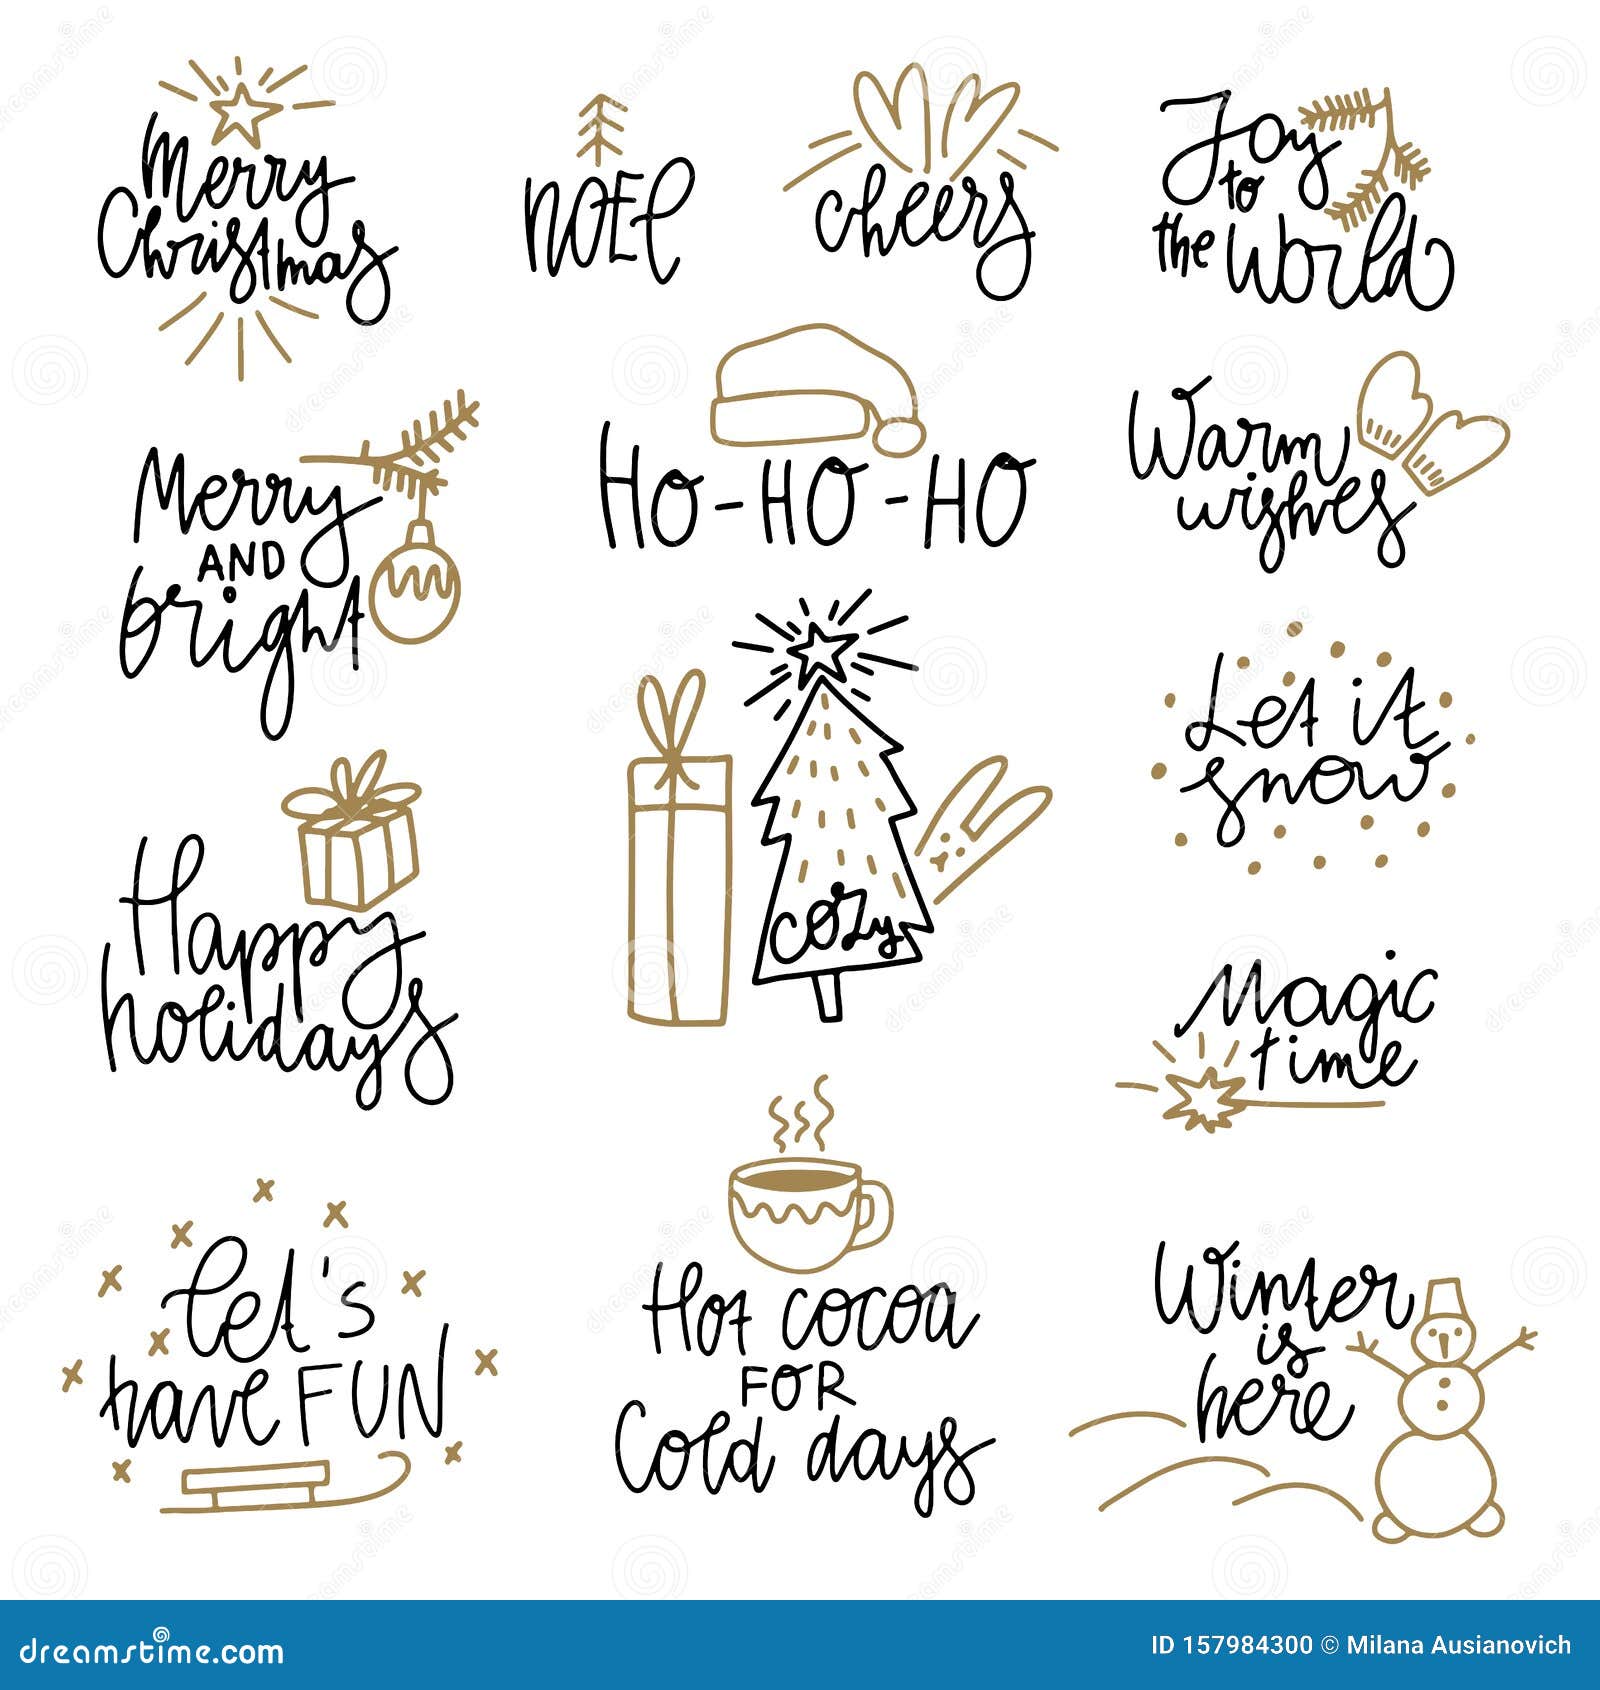 Merry
Christmas
NOEL
cheers
Joy
to
the World
Merry
AND
bright
HO-HO-HO
Warm
wishes
Let it
snow
Happy
holidays
cozy
Magic
time
Let's
have FUN
Hot cocoa
FOR
Cold days
Winter
is
here
dreamstime.com
ID 157984300 © Milana Ausianovich